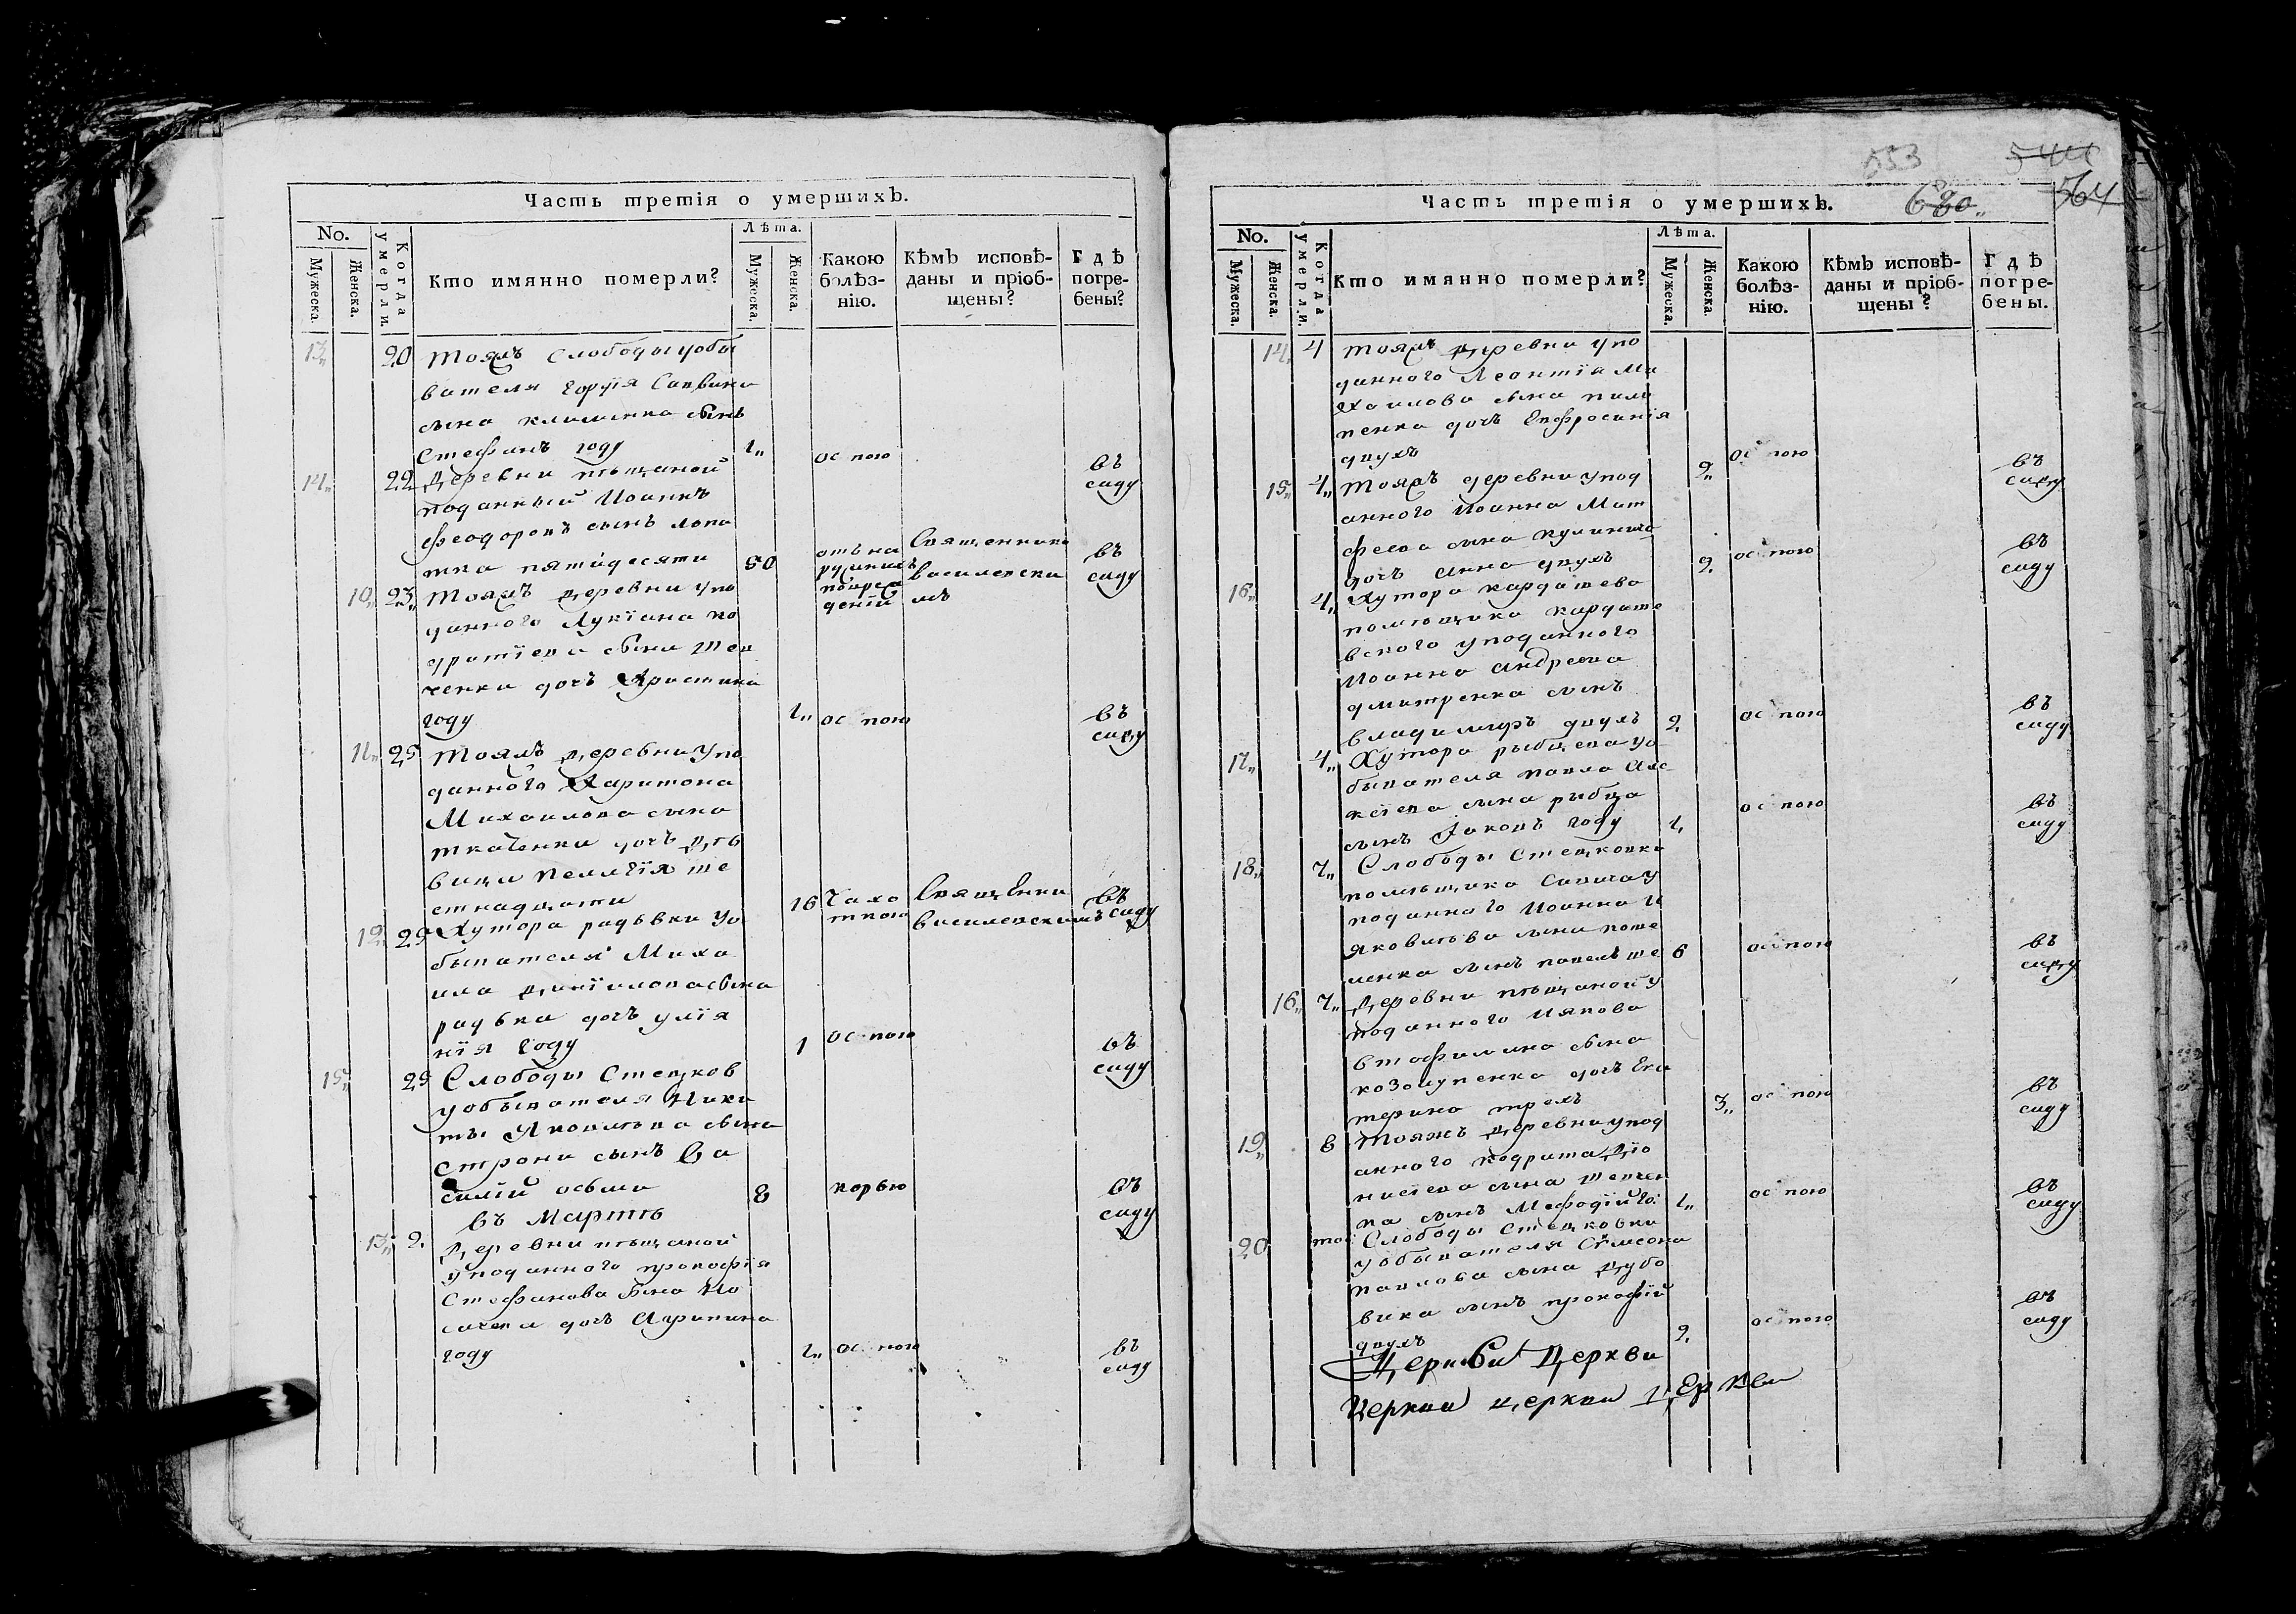 Часть третія о умершихъ.
No.
Мужеска.
Женска.
Когда умерли.
Кто имянно померли?
Лѣта.
Мужеска.
Женска.
Какою болѣз-
нію.
Кѣмъ исповѣ-
даны и пріоб-
щены?
Гдѣ
погре-
бены?
13 20 тояжъ слободы уобы
вателя
сына клименка сынъ
Стефанъ году 1 оспою въ
саду
14 22 Деревни пѣщаной
поданный Иоаннъ
феодоровъ сынъ лопа
тка пятидесяти 50 Священник
василевски
мъ въ
саду
10 23 тояжъ деревни упо
данного Лукіана ко
дратіева сына шев
ченка дочь Христина
году 1 оспою въ
саду
11 25 тояжъ деревни упо
данного Харитона
Михаилова сына
ткаченка дочь дѣ
вица пелагія ше
стнадцати 16 Чахо
ткою Священни
василевскимъ въ
саду
12 25 Хутора радьвки уо
бывателя Миха
ила даніиловасына
радька дочь улія
нія году 1 оспою въ
саду
15 25 Слободы Стецков
уобывателя Ники
ты Яковлева сына
сынъ Ва
силій осьми 8 корью въ
саду
въ Мартѣ
13 2 Деревни пѣщаной
уподанного прокофія
Стефанова сына
дочь Агрипина
году 1 оспою въ
саду
Часть третія о умершихъ.
553
544
680
564
No.
Мужеска.
Женска.
Когда умерли.
Кто имянно померли?
Лѣта.
Мужеска.
Женска.
Какою
болѣз-
нію.
Кѣмъ исповѣ-
даны и пріоб-
щены?
Гдѣ
погре-
бены.
14 4 тояжъ деревни упо
данного Леонтія Ми
хаилова сына пили
пенка дочь Евфросинія
двухъ 2 оспою въ
саду
15 4 тояжъ деревни упод
анного Иоанна Мат
феева сына
дочь анна двухъ 2 оспою въ
саду
16 4 Хутора кардашева
помещика кардаше
вского уподанного
Иоанна андреева
дмитренка сынъ
владимиръ двухъ 2 оспою въ
саду
17 4 Хутора рыбцева уо
бывателя павла але
ксіева сына рыбца
сынъ Яковъ году 1 оспою въ
саду
18 7 Слободы Стецковки
помѣщика Савича у
поданного Иоанна
яковлева сына
ленка сынъ павелъ ше 6 оспою въ
саду
16 7 Деревни пѣщаной у
поданного Иякова
сына
козолупенка дочь Ека
терина трехъ 3 оспою въ
саду
19 8 Тояжъ деревни упод
анного кодрата діо
нисіева сына шевчен
ка сынъ Мефодій го: 1 оспою въ
саду
20 Слободы Стецковки
уобывателя Симеона
павлова сына дубо
вика сынъ прокофій
двухъ 2 оспою въ
саду
Церкви Церкви
Церкви церкви Церкви